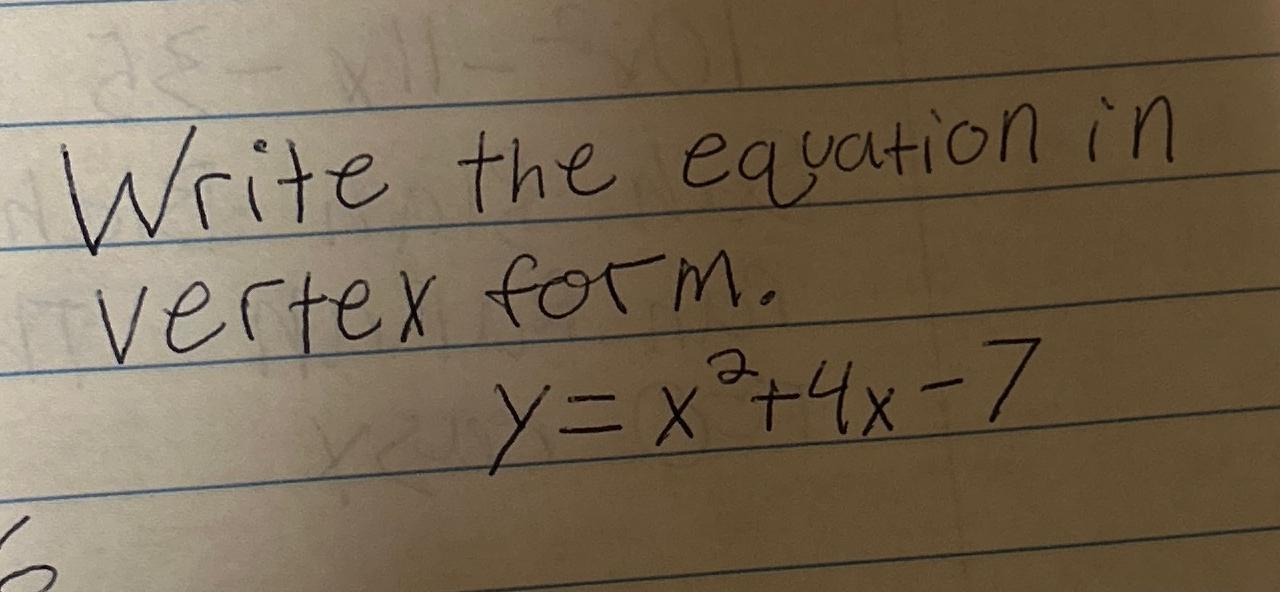 Write the equation in
vertex form.
y = x²+4x-7
6